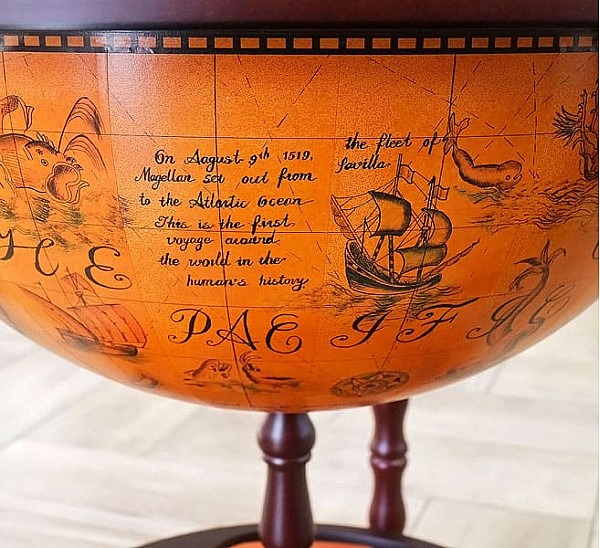 On August 9th 1519,
Magellan set out from
to the Atlantic Ocean
This is the first
voyage around
the world in the
human's history
the fleet of
Savilla.
CE
PACIFIC